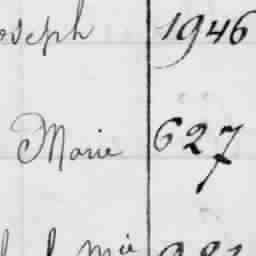 oseph 1946
Marie 627